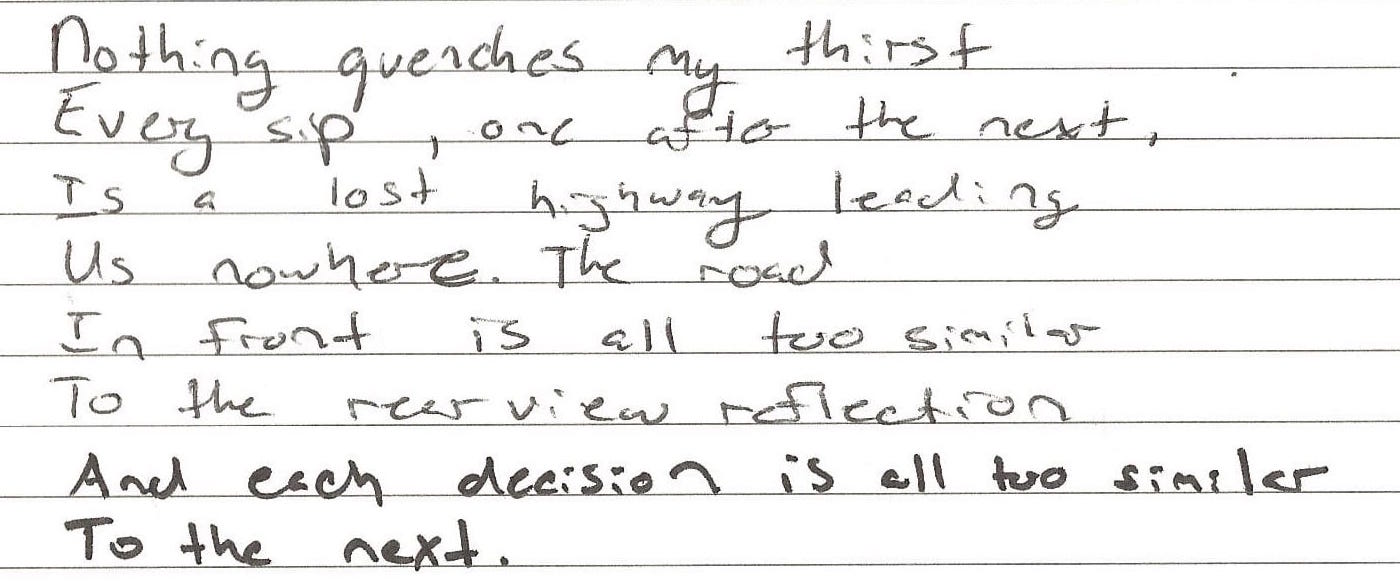 Nothing quenches my thirst
Every sip, one after the next,
Is a lost highway leading
Us nowhere. The road
In front is all too similar
To the rearview reflection
And each decision is all too similar
To the next.